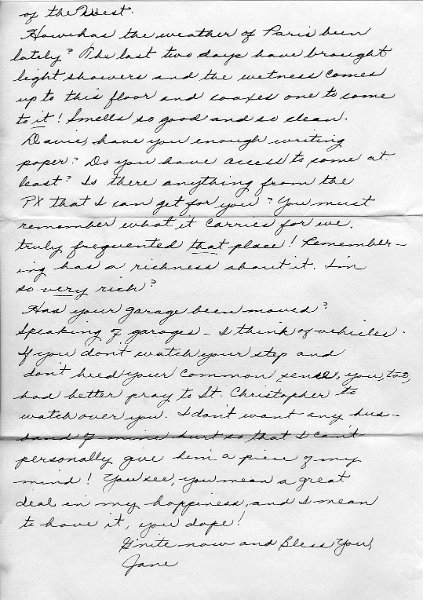 of the West.
How has the weather of Paris been
lately? The last two days have brought
light showers and the wetness comes
up to this floor and coaxes one to come
to it! Smells so good and so clean.
Davie, have you enough writing
paper? Do you have access to some at
least? Is there anything from the
PX that I can get for you? You must
remember what it carries for we
truly frequented that place! Remember-
ing has a richness about it. I'm
so very rich?
Has your garage been moved?
Speaking of garages - I think of vehicles.
If you don't watch your step and
don't heed your common sense, you, too,
had better pray to St. Christopher to
watch over you. I don't want any hus-
band of mine hurt so that I can't
personally give him a piece of my
mind! You see, you mean a great
deal in my happiness, and I mean
to have it, you dope!
G'nite now and Bless You,
Jane